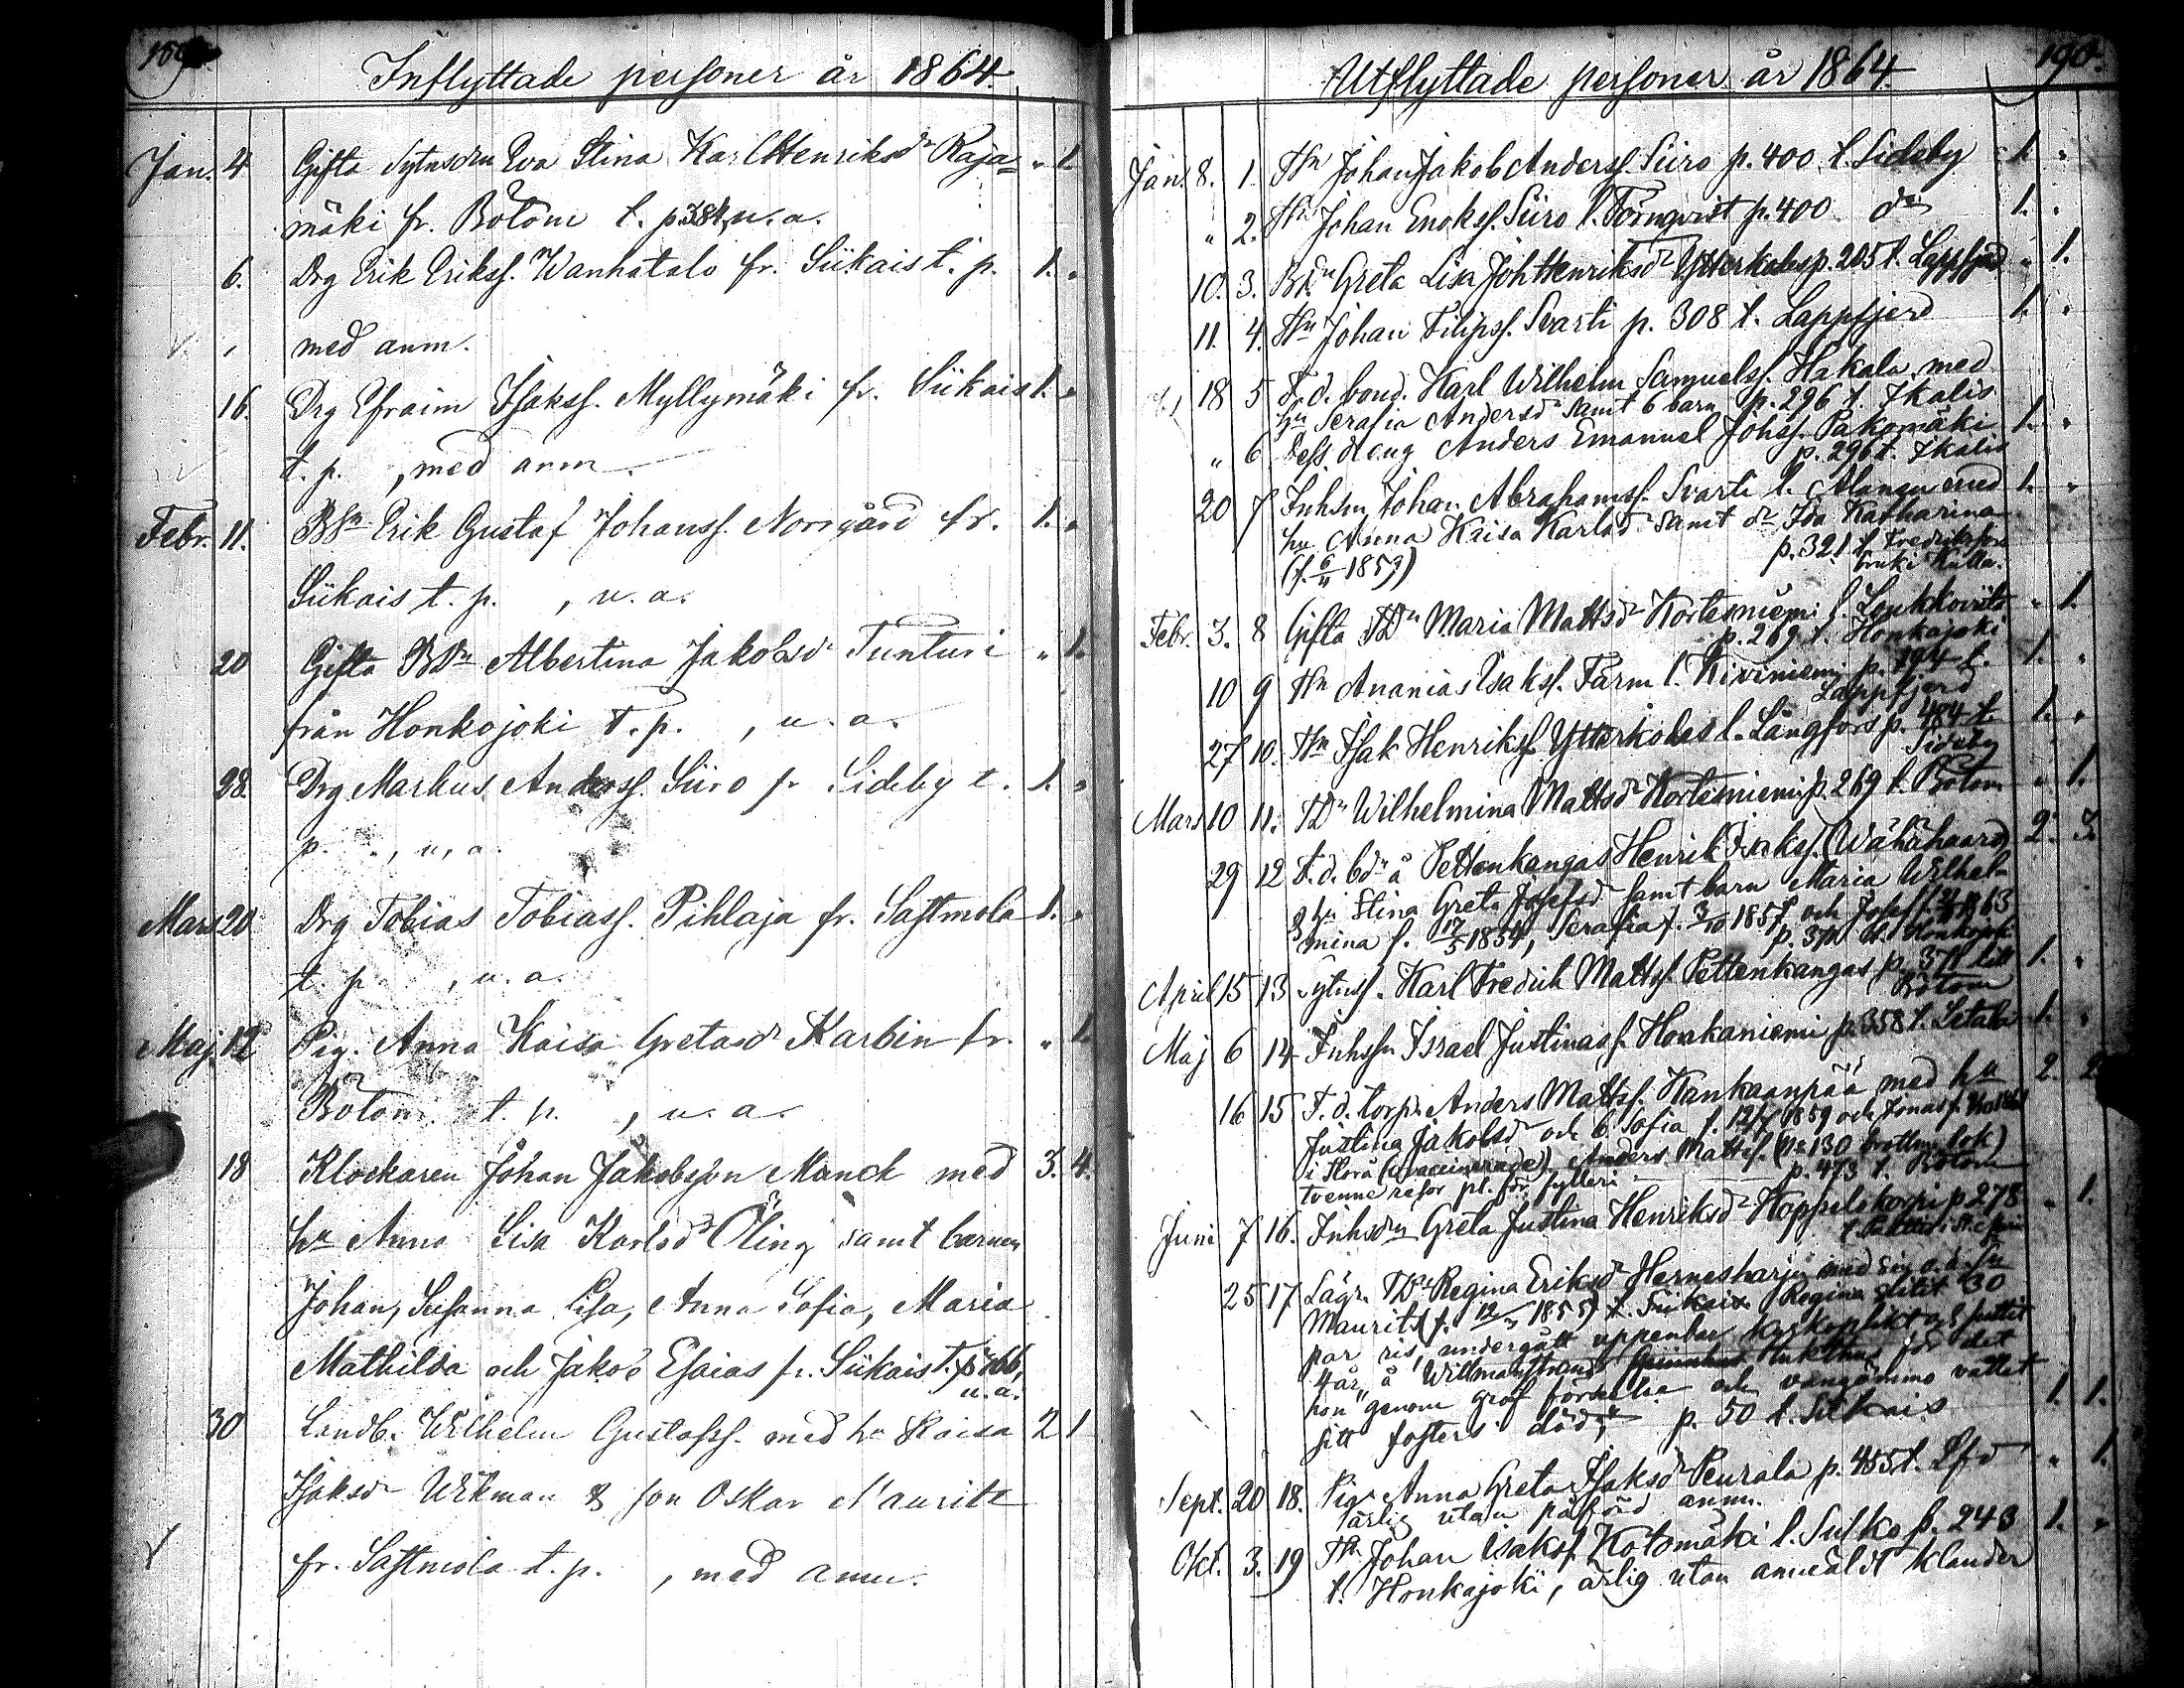 Inflyttade personer år 1864.
Jan. 4 Gifta Sytnsdrn Eva Stina Karl Henriksdr Raja= " 1
mäki fr. Bötom t. p. 384, u. a.
6. Drg Erik Erikss. Wanhatalo fr. Siikais t. p. 1. "
med anm.
16. Drg Efraim Isakss. Myllymäki fr. Siikais 1. "
t. p. , med anm.
Febr. 11. BSn Erik Gustaf Johanss. Norrgård fr. 1. "
Siikais t. p. , u. a.
20 Gifta BDn Albertina Jakobsdr Tunturi " 1.
från Honkojoki t. p. , u. a.
28. Drg Markus Anderss. Siiro fr Sideby t. 1. "
p. , u, a.
Mars 20 Drg Tobias Tobiass. Pihlaja fr. Sastmola 1. "
t. p. , u. a.
Maj 12 Pig. Anna Kaisa Gretasdr Karbin fr. " 1.
Bötom t. p. , u. a.
18 Klockaren Johan Jakobsson Manck med 3. 4.
hu Anna Lisa Karlsdr Öling samt barnen
Johan, Susanna Lisa, Anna Sofia, Maria
Mathilda och Jakob Esaias fr. Siikais t. p.
u. a.
30 Landb. Wilhelm Gustafss. med hu Kaisa 2 1
Isaksdr Wikman & son Oskar Mauritz
fr. Sastmola t. p. , med anm.
Utflyttade personer år 1864. 190.
Jan. 8. 1. Hn Johan Jakob Anderss. Siiro p. 400 t. Sideby 1. "
" 2. Hn Johan Enokss. Siiro l. Törnqvist p. 400 do 1. "
10. 3. BDn Greta Lisa Joh Henriksdr Ytterkoles p. 205 t. Lappfjerd " 1.
11. 4. Hn Johan Filipss. Svarti p. 308 t. Lappfjerd 1. "
18 5 F. d. bond. Karl Wilhelm Samuelss. Hakala med
hu Serafia Andersdr samt 6 barn p. 296 t. Ikalis
" 6 Dess dreng Anders Emanuel Johss. Pakomäki 1. "
p. 296 t. Ikalis
20 7 Inhsn Johan Abrahamss. Svarti l. Alanen med 1. "
hu Anna Kaisa Karlsdr samt dr Ida Katharina
(f. 6/11 1859) p. 321 t. Fredriksfors
bruk i Kulla.
Febr. 3. 8 Gifta TDn Maria Mattsdr Kortesniemi l. " 1.
p. 269 t. Honkajoki
10 9 Hn Ananias Isakss. Färm l. Kiviniemi p. 194 t. 1. "
Lappfjerd
27 10. Hn Isak Henrikss. Ytterkoles l. Långfors p. 484 t. 1. "
Sideby
Mars 10 11. TDn Wilhelmina Mattsdr Kortesniemi p. 269 t. Bötom " 1.
29 12 F. d. bdn å Pettenkangas Henrik Isakss. Wähähaara 2. 3.
& hu Stina Greta Josefsdr samt barn Maria Wilhel-
mina f. 17/5 1854, Serafia f. 3/10 1857 och Josef
p. 371 t. Honkajoki
April 15 13 Sytnss. Karl Fredrik Mattss. Pettenkangas p. 371 till 1. "
Bötom
Maj 6 14 Inhssn Israel Justinass. Honkaniemi p. 358 t. Letala 1. "
16 15 F. d. torp. Anders Mattss. Kankaanpää med hu 2. 2.
Justina Jakobsdr och b. Sofia f. 12/7 1859 och Jonas f.
i Storå (ovaccinerade). Anders Mattss. (No 130 brottm. bok)
tvenne resor pl. för fylleri p. 473 t. Bötom
Juni 7 16. Inhsdrn Greta Justina Henriksdr Koppelokorpi p. 278 " 1.
25 17 Lägr. TDn Regina Eriksdr Hernesharju med sin o. ä. son
Maurits (f. 12/3 1855) t. Siikais. Regina slitit 30
par ris, undergått uppenbar kyrkoplikt och suttit
4 år å Willmanstrands tukthus för det
hon "genom grof förvållande och vangömmo vållat
sitt fosters död," p. 50 t. Siikais 1. 1.
Sept. 20 18. Pig. Anna Greta Isaksdr Peurala p. 455 t. Lfd " 1.
ärlig utan påförd anm.
Okt. 3. 19 Thn Johan Isakss. Kotomäki l. Sulko p. 243 1. "
t. Honkajoki, ärlig utan anmäldt klander